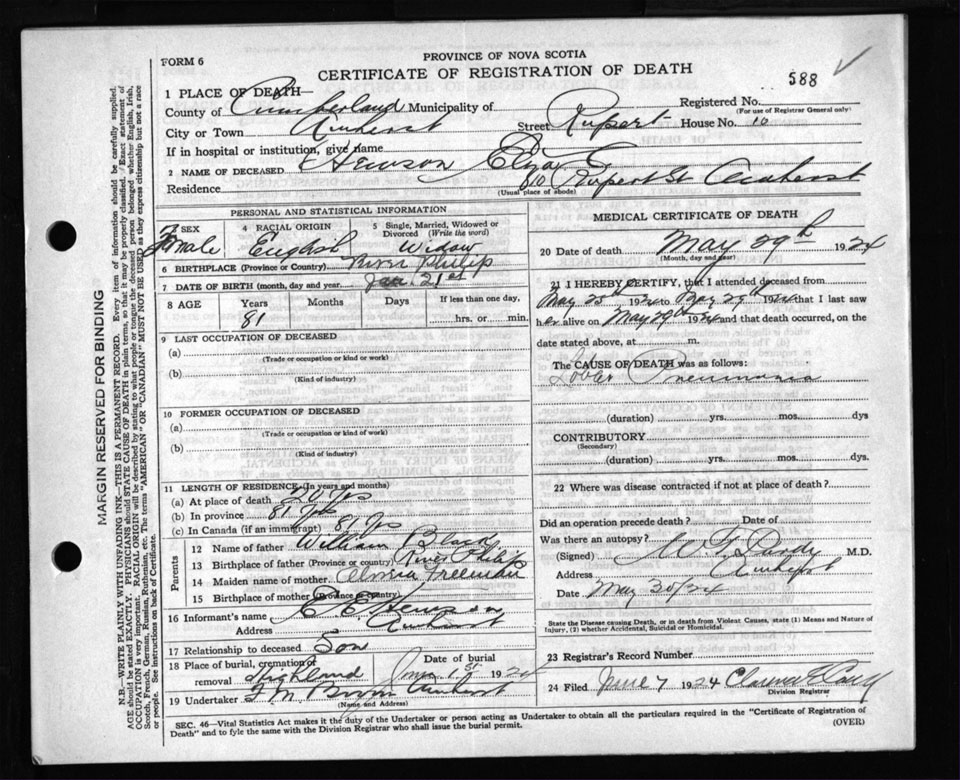 FORM 6
PROVINCE OF NOVA SCOTIA
CERTIFICATE OF REGISTRATION OF DEATH
588
1 PLACE OF DEATH—
County of Cumberland Municipality of
Registered No.
(For use of Registrar General only)
City or Town Amherst Street Rupert House No. 10
If in hospital or institution, give name
2 NAME OF DECEASED Hewson Eliza E
Residence 10 Rupert St Amherst
(Usual place of abode)
PERSONAL AND STATISTICAL INFORMATION
3 SEX Female
4 RACIAL ORIGIN English
5 Single, Married, Widowed or Divorced (Write the word) Widow
6 BIRTHPLACE (Province or Country) River Philip
7 DATE OF BIRTH (month, day and year) Jan 21st
8 AGE Years 81 Months Days If less than one day, hrs. or min.
9 LAST OCCUPATION OF DECEASED
(a)
(Trade or occupation or kind of work)
(b)
(Kind of industry)
10 FORMER OCCUPATION OF DECEASED
(a)
(Trade or occupation or kind of work)
(b)
(Kind of industry)
11 LENGTH OF RESIDENCE (In years and months)
(a) At place of death 20 Yrs
(b) In province 81 Yrs
(c) In Canada (if an immigrant) 81 Yrs
Parents
12 Name of father William Black
13 Birthplace of father (Province or country) River Philip
14 Maiden name of mother Freeman
15 Birthplace of mother (Province or country)
16 Informant's name Hewson
Address Amherst
17 Relationship to deceased Son
18 Place of burial, cremation or removal Highland Date of burial June 1st 1924
19 Undertaker Amherst
(Name and Address)
MEDICAL CERTIFICATE OF DEATH
20 Date of death May 29th 1924
(Month, day and year)
21 I HEREBY CERTIFY, that I attended deceased from
May 25th 1924 to May 29th 1924 that I last saw
her alive on May 29th 1924 and that death occurred, on the
date stated above, at m.
The CAUSE OF DEATH was as follows:
Lobar Pneumonia
(duration) yrs. mos. dys
CONTRIBUTORY
(Secondary)
(duration) yrs. mos. dys.
22 Where was disease contracted if not at place of death?
Did an operation precede death? Date of
Was there an autopsy?
(Signed) M.D.
Address Amherst
Date May 30/24
State the Disease causing Death, or in death from Violent Causes, state (1) Means and Nature of Injury, (2) whether Accidental, Suicidal or Homicidal.
23 Registrar's Record Number
24 Filed June 7 1924 Clarence
Division Registrar
SEC. 46—Vital Statistics Act makes it the duty of the Undertaker or person acting as Undertaker to obtain all the particulars required in the "Certificate of Registration of
Death" and to fyle the same with the Division Registrar who shall issue the burial permit.
(OVER)
MARGIN RESERVED FOR BINDING
N.B.—WRITE PLAINLY WITH UNFADING INK—THIS IS A PERMANENT RECORD. Every item of information should be carefully supplied.
AGE should be stated EXACTLY. PHYSICIANS should STATE CAUSE OF DEATH in plain terms, so that it may be properly classified. Exact statement of
OCCUPATION is very important. RACIAL ORIGIN will be described by stating to what people or tongue the deceased person belonged whether English, Irish,
Scotch, French, German, Russian, Ruthenian, etc. The terms "AMERICAN" OR "CANADIAN" MUST NOT BE USED as they express citizenship but not a race
or people. See instructions on back of Certificate.